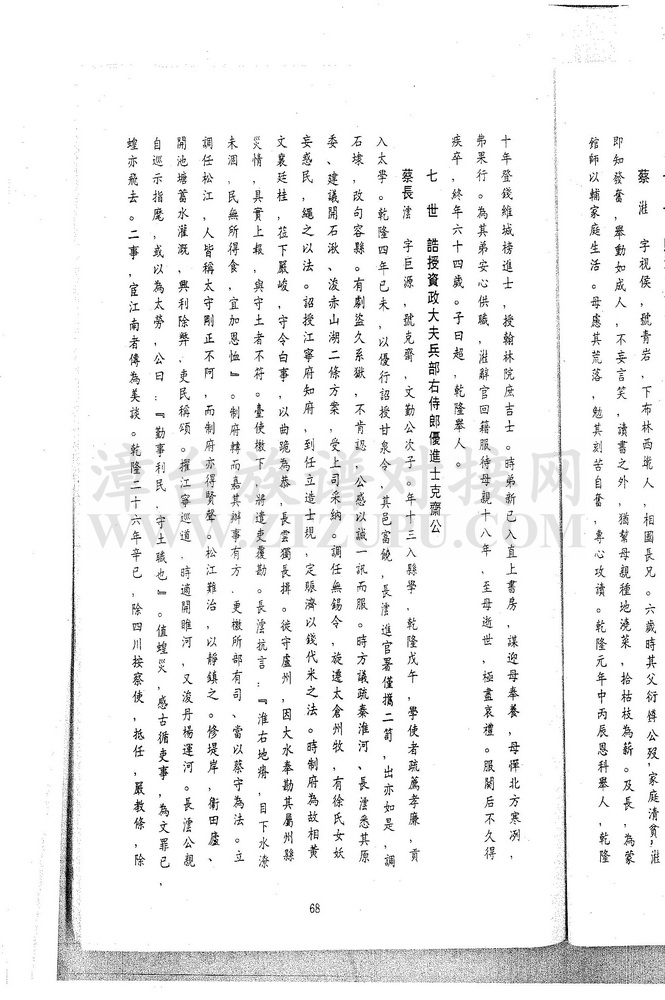 蔡漼 字視侯，號青岩，下布墘人，相國長兄。六歲時其父衍鎛公歿，家庭清貧，漼
即知發奮，舉動如成人，不妄言笑，讀書之外，猶幫母親種地澆菜，拾枯枝為薪。及長，為蒙
館師以輔家庭生活。母慮其荒落，勉其刻苦自奮，專心攻讀。乾隆元年中丙辰恩科舉人，乾隆
十年登錢維城榜進士，授翰林院庶吉士。時弟新已入直上書房，謀迎母奉養，母憚北方寒冽，
弗果行。為其弟安心供職，漼辭官回籍服待母親十八年，至母逝世，極盡哀禮。服闋后不久得
疾卒，終年六十四歲。子曰超，乾隆舉人。
七世 誥授資政大夫兵部右侍郎優進士克齋公
蔡長澐 字巨源，號克齋，文勤公次子。年十三入縣學，乾隆戊午，學使者疏薦孝廉，貢
入太學。乾隆四年己未，以優行詔授甘泉令，其邑富饒，長澐進官署僅攜二笥，出亦如是，調
石埭，改句容縣。有劇盜久系獄，不肯認，公感以誠一訊而服。時方議疏秦淮河、長澐悉其原
委、建議開石湫、浚赤山湖二條方案，受上司采納。調任無錫令，旋遷太倉州牧，有徐氏女妖
妄惑民，繩之以法。詔授江寧府知府，到任立造士規，定賑濟以錢代米之法。時制府為故相黃
文襄廷桂，莅下嚴峻，守令白事，以曲跪為恭，長雲獨長揖。徙守盧州，因大水奉勘其屬州縣
災情，具實上報，與守土者不符。臺使檄下，將遣吏覆勘。長澐抗言：『淮右地瘠，目下水潦
未涸，民無所得食，宜加恩恤』。制府轉而嘉其辦事有方，更檄所部有司、當以蔡守為法。立
調任松江，人皆稱太守剛正不阿，而制府亦得賢聲。松江難治，以靜鎮之。修堤岸，衛田廬、
開池塘蓄水灌溉，興利除弊，吏民稱頌。擢江寧巡道，時適開睢河，又浚丹楊運河。長澐公親
自巡示指麾，或以為太勞，公曰：『勤事利民，守土職也』。值蝗災，感古循吏事，為文罪己，
蝗亦飛去。二事，宦江南者傳為美談。乾隆二十六年辛巳，除四川按察使，抵任，嚴教條，除
68
漳台族譜对接网
WWW.ZTZUPU.COM